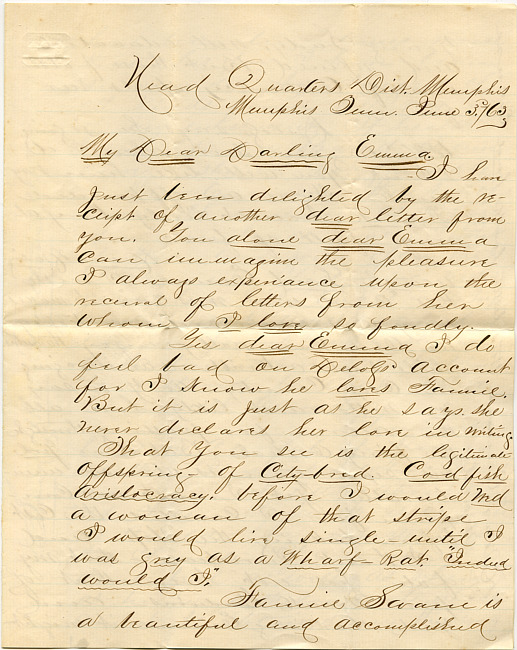 Head Quarters Dist. Memphis
Memphis Tenn. June 3d/63
My Dear Darling Emma.
I have
just been delighted by the re-
ceipt of another dear letter from
you. You alone dear Emma
can immagine the pleasure
I always experiance upon the
receival of letters from her
whom I love so fondly.
Yes dear Emma I do
feel bad on account
for I know he loves Fannie.
But it is just as he says. she
never declares her love in writing.
That you see is the legitimate
offspring of City-bred. Cod-fish
Aristocracy. before I would Wed
a woman of that stripe
I would live single-until I
was grey as a Wharf-Rat. "Indeed
would I."
Fannie Swam is
a beautiful and accomplished